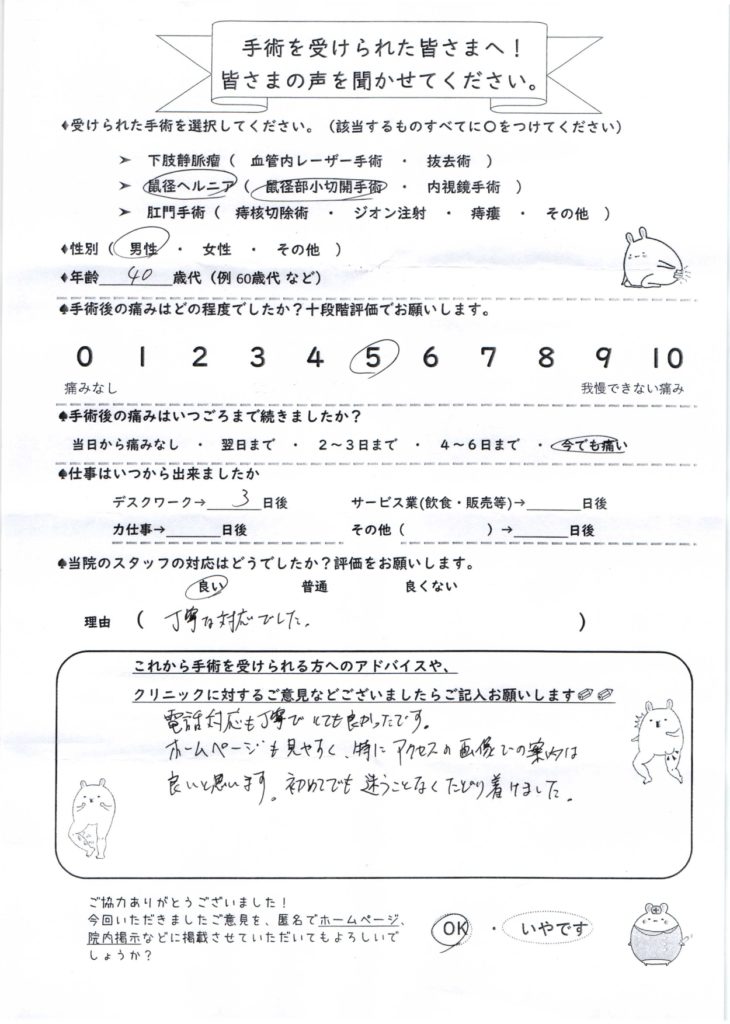 手術を受けられた皆さまへ！
皆さまの声を聞かせてください。
♦受けられた手術を選択してください。（該当するものすべてに〇をつけてください）
➤ 下肢静脈瘤（ 血管内レーザー手術 ・ 抜去術 ）
➤ 鼠径ヘルニア（ 鼠径部小切開手術 ・ 内視鏡手術 ）
➤ 肛門手術（ 痔核切除術 ・ ジオン注射 ・ 痔瘻 ・ その他 ）
♦性別（ 男性 ・ 女性 ・ その他 ）
♦年齢 40 歳代（例 60歳代 など）
♠手術後の痛みはどの程度でしたか？十段階評価でお願いします。
0 1 2 3 4 5 6 7 8 9 10
痛みなし 我慢できない痛み
♠手術後の痛みはいつごろまで続きましたか？
当日から痛みなし ・ 翌日まで ・ 2～3日まで ・ 4～6日まで ・ 今でも痛い
♠仕事はいつから出来ましたか
デスクワーク→ 3 日後 サービス業(飲食・販売等)→ 日後
力仕事→ 日後 その他（ ）→ 日後
♠当院のスタッフの対応はどうでしたか？評価をお願いします。
良い 普通 良くない
理由 （ 丁寧な対応でした。 ）
これから手術を受けられる方へのアドバイスや、
クリニックに対するご意見などございましたらご記入お願いします
電話対応も丁寧でとても良かったです。
ホームページも見やすく、特にアクセスの画像での案内は
良いと思います。初めてでも迷うことなくたどり着けました。
ご協力ありがとうございました！
今回いただきましたご意見を、匿名でホームページ、
院内掲示などに掲載させていただいてもよろしいで
しょうか？
OK ・ いやです